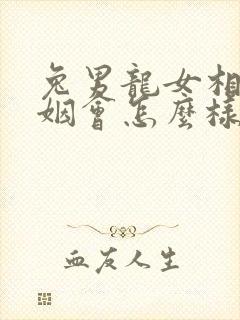 兔男龍女相
姻會怎麼樣
血友人生